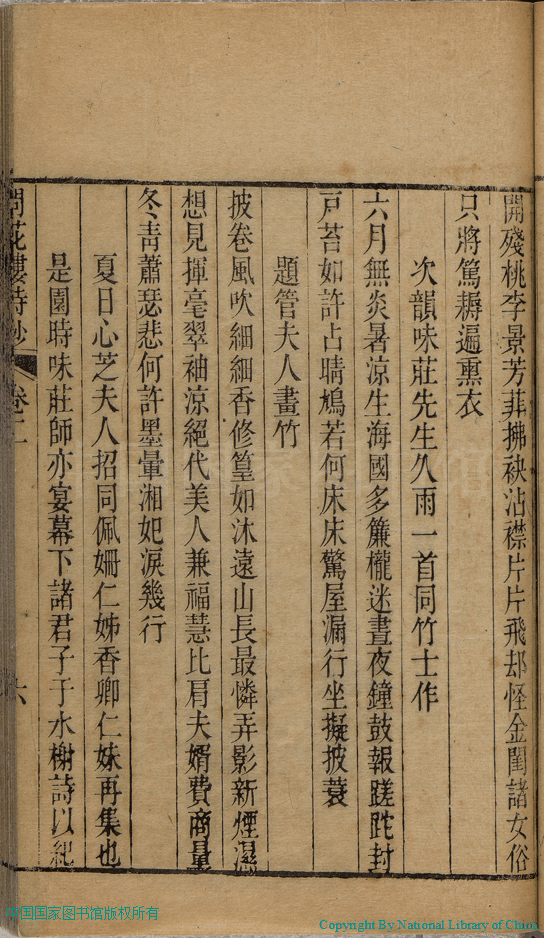 開殘桃李景芳菲拂袂沾襟片片飛却怪金閨諸女俗
只將篤耨遍熏衣
次韻味莊先生久雨一首同竹士作
六月無炎暑涼生海國多簾櫳迷晝夜鐘鼓報蹉跎封
戸苔如許占晴鳩若何床床驚屋漏行坐擬披蓑
題管夫人畫竹
披卷風吹細細香修篁如沐遠山長最憐弄影新煙濕
想見揮毫翠袖涼絕代美人兼福慧比肩夫婿費商量
冬青蕭瑟悲何許墨暈湘妃淚幾行
夏日心芝夫人招同佩姍仁姊香卿仁妹再集也
是園時味莊師亦宴幕下諸君子于水榭詩以紀
問花樓詩鈔 卷二 六
中国国家图书馆版权所有
Copyright By National Library of China